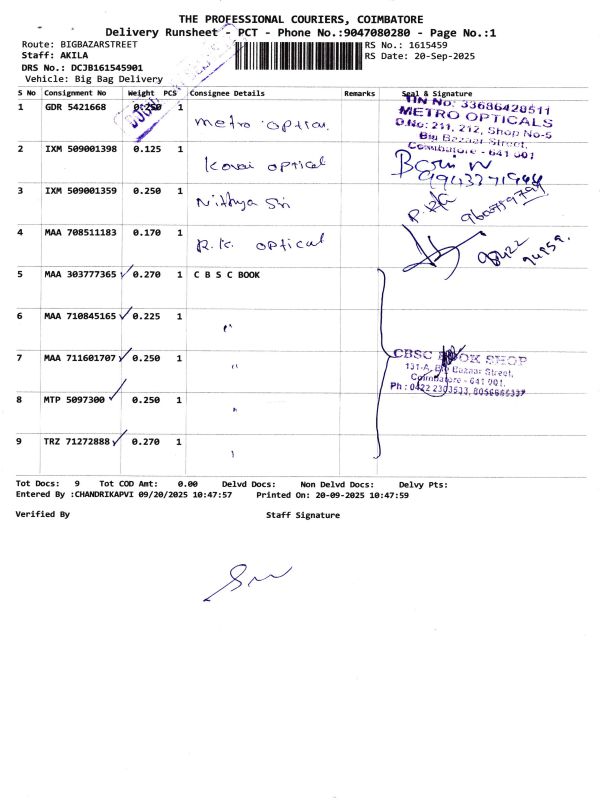 THE PROFESSIONAL COURIERS, COIMBATORE
Delivery Runsheet - PCT - Phone No.:9047080280 - Page No.:1
Route: BIGBAZARSTREET
RS No.: 1615459
Staff: AKILA
RS Date: 20-Sep-2025
DRS No.: DCJB161545901
Vehicle: Big Bag Delivery
S No Consignment No Weight PCS Consignee Details Remarks Seal & Signature
1 GDR 5421668 0.250 1 Metro Optical
TIN No: 33686428511
METRO OPTICALS
D.No: 211, 212, Shop No-5
Big Bazaar Street,
Coimbatore - 641 001
2 IXM 509001398 0.125 1 Kovai optical
3 IXM 509001359 0.250 1 Nithya Sri
4 MAA 708511183 0.170 1 R.K. optical
5 MAA 303777365 ✓ 0.270 1 C B S C BOOK
6 MAA 710845165 ✓ 0.225 1 "
7 MAA 711601707 ✓ 0.250 1 "
CBSC BOOK SHOP
131-A, Big Bazaar Street,
Coimbatore - 641 001.
Ph : 0422 2303533,
8 MTP 5097300 ✓ 0.250 1 "
9 TRZ 71272888 ✓ 0.270 1
Tot Docs: 9 Tot COD Amt: 0.00 Delvd Docs: Non Delvd Docs: Delvy Pts:
Entered By :CHANDRIKAPVI 09/20/2025 10:47:57 Printed On: 20-09-2025 10:47:59
Verified By Staff Signature